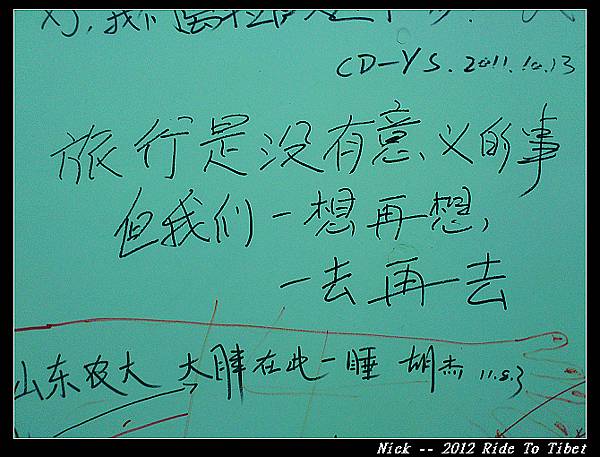 对,我们
CD-YS.2011.10.13
旅行是没有意义的事
但我们一想再想,
一去再一去
山东农大 大胖在此一睡 胡杰 11.8.3
Nick -- 2012 Ride To Tibet